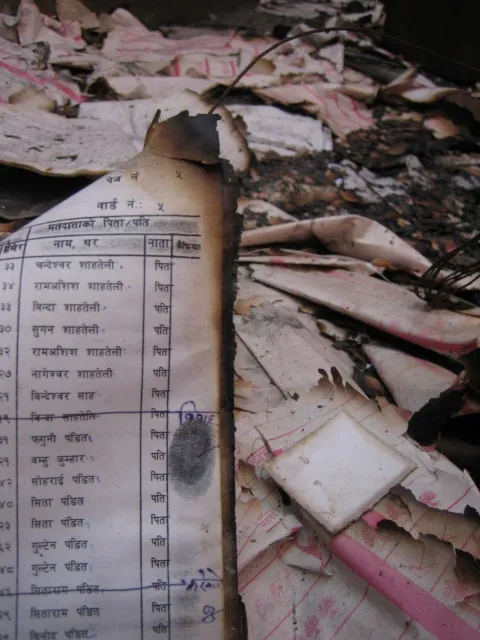 पेज नं ५
वार्ड नं.: ५
मतदाताको पिता/पति
नाम, थर नाता कैफियत
३३ चन्देश्वर शाहतेली पिता
३४ रामअशिश शाहतेली पिता
३३ बिन्दा शाहतेली पति
३० सुगन शाहतेली पति
३२ रामअशिश शाहतेली पिता
२७ नागेश्वर शाहतेली पति
२१ बिन्देश्वर साह पति
बिन्दा साहतेलि पिता
३१ फगुनी पंडित पति
२१ बम्हु कुम्हार पिता
४२ सोहराई पंडित पिता
४० सिता पंडित पति
२३ सिता पंडित पिता
६२ गुल्टेन पंडित पति
४८ गुल्टेन पंडित पिता
सिताराम पंडित पति
२९ सिताराम पंडित पिता
बिनोद पंडित पति